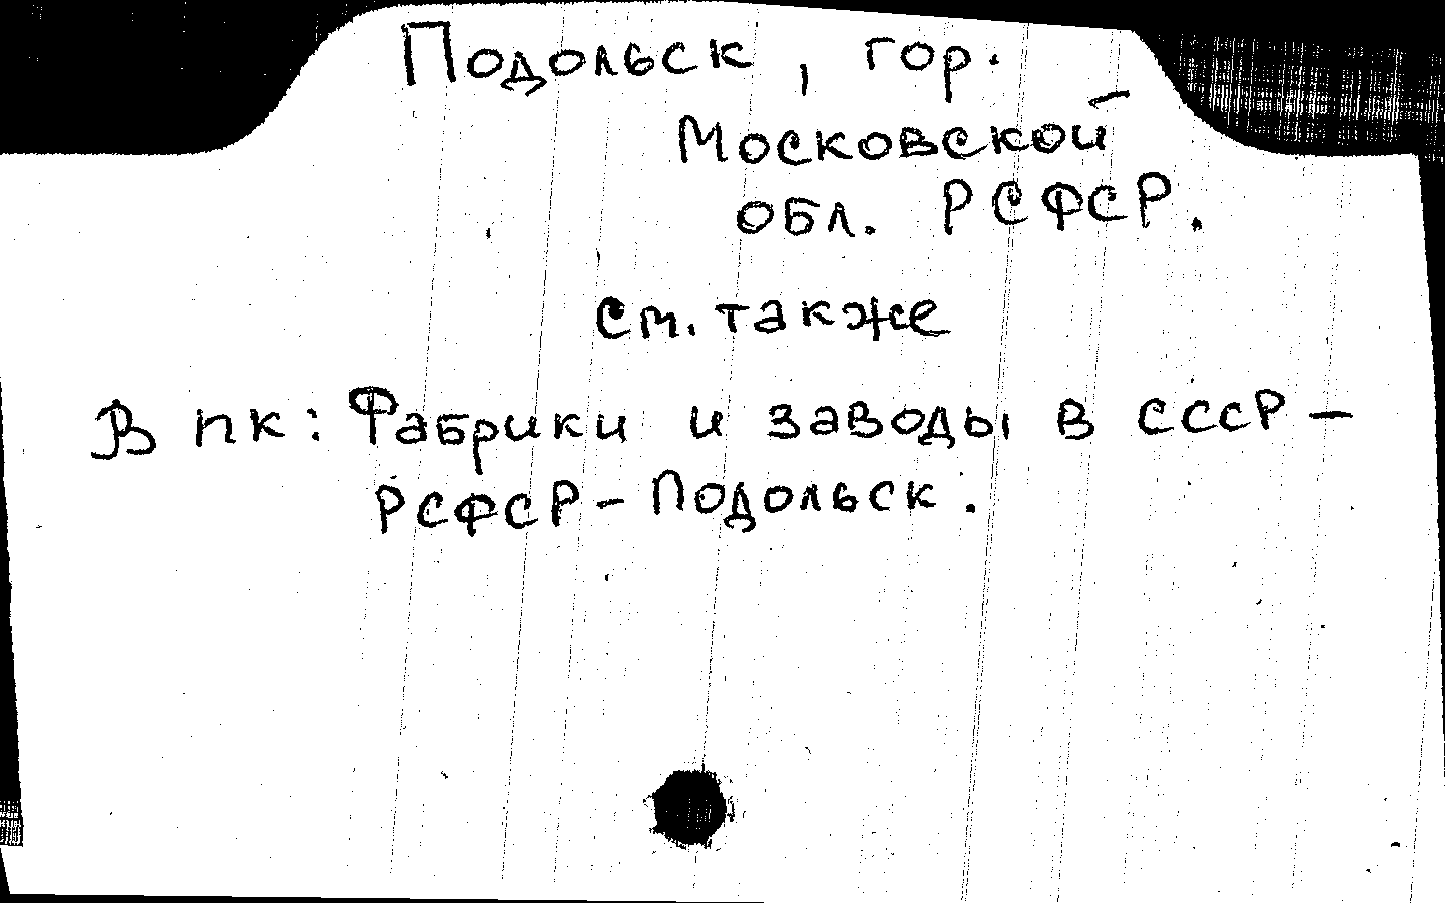 Подольск, гор.
Московской
обл. РСФСР.
см. также
В пк: Фабрики и заводы в СССР –
РСФСР – Подольск.